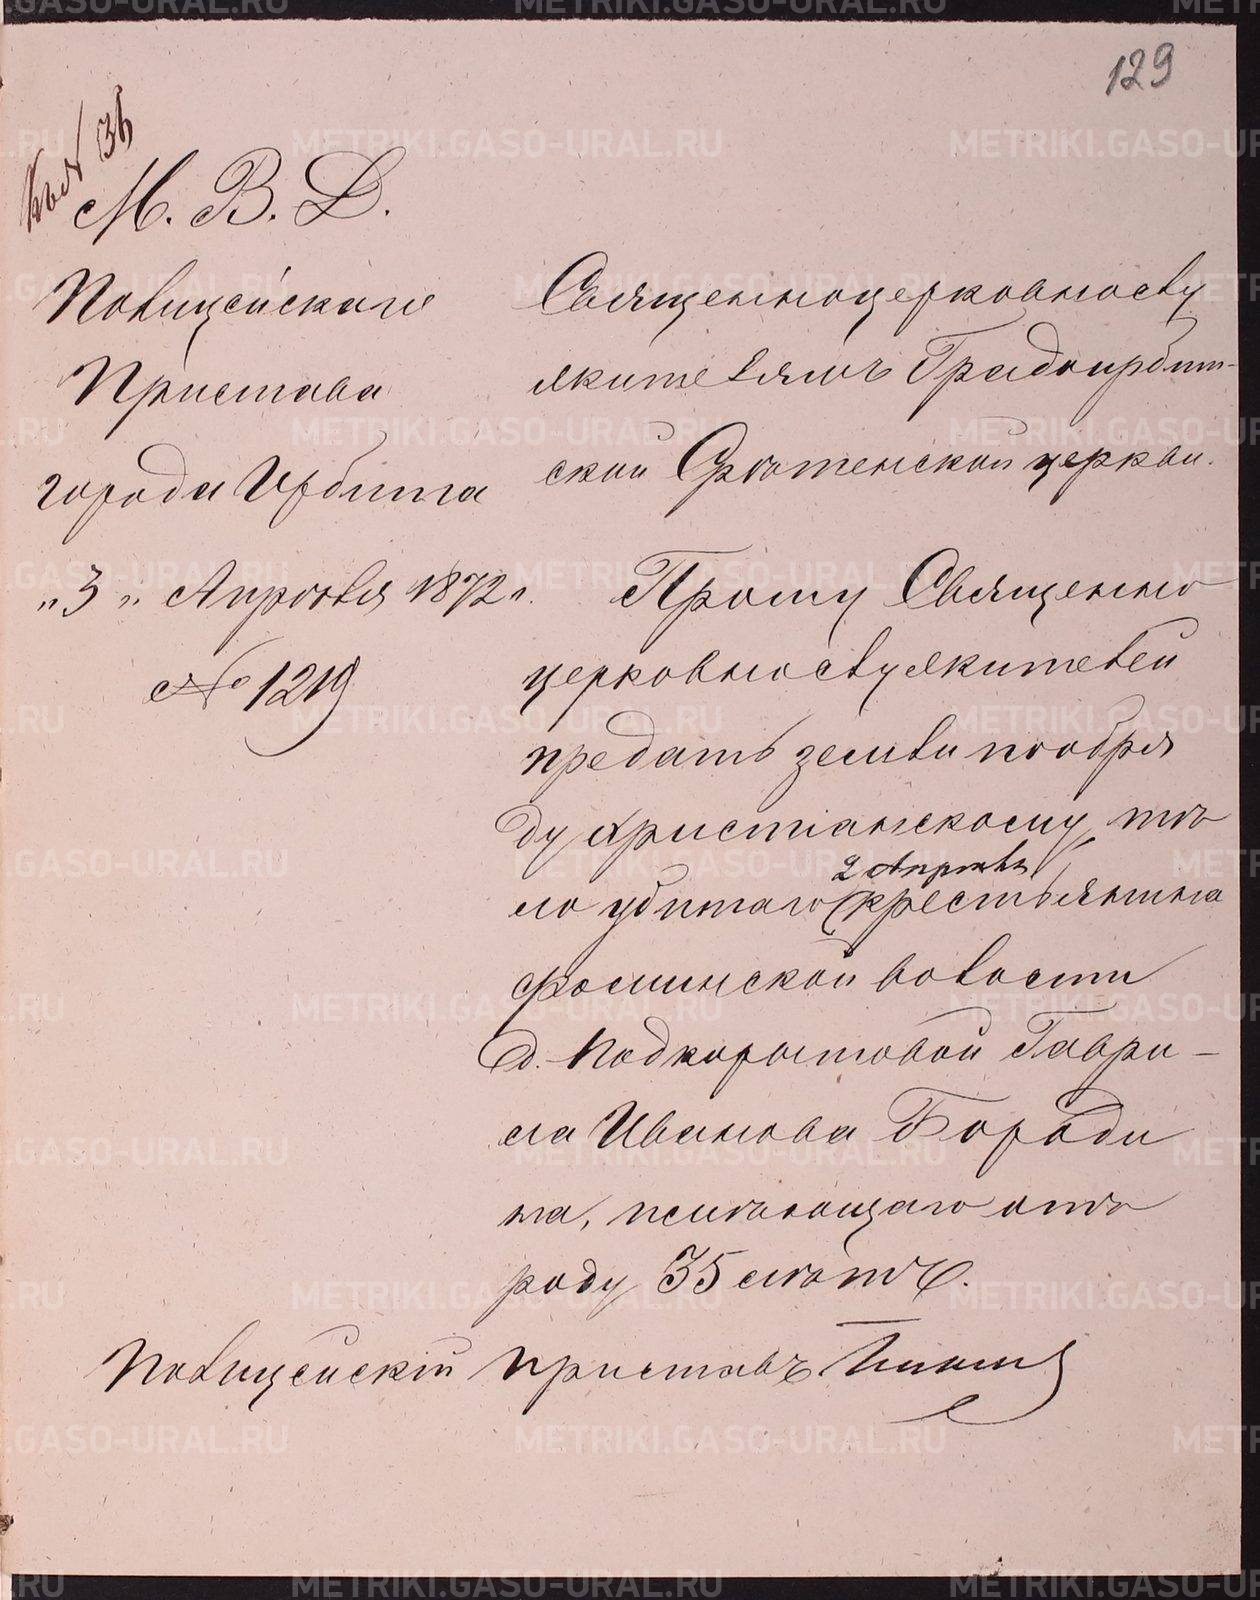 129
Къ № 36
М. В. Д.
Полицейскаго
Пристава
города Ирбита
„3„ Апрѣля 1872 г.
№ 1219
Священноцерковнослу
жителямъ Градоирбит-
ской Срѣтенской церкви.
Прошу Священно
церковнослужителей
предать земли по обря
ду христіанскому, тѣ
ло убитаго 2 Апрѣля крестьянина
Фоминской волости
д. Подкорытовой Гаври-
ла Иванова Бороди
на, имѣющаго отъ
роду 35 лѣтъ.
Полицейскій Приставъ
METRIKI.GASO-URAL.RU